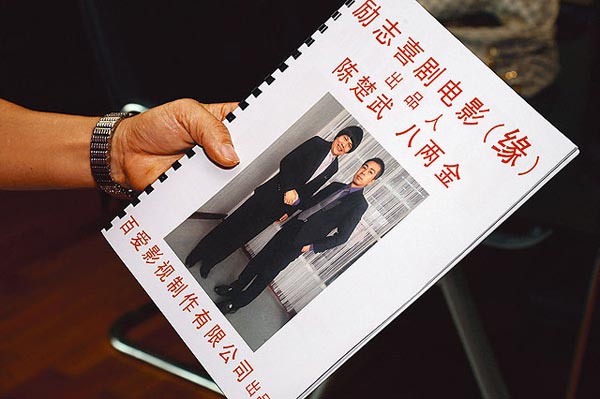 励志喜剧电影(缘)
出品人
陈楚武 八两金
百爱影视制作有限公司出品